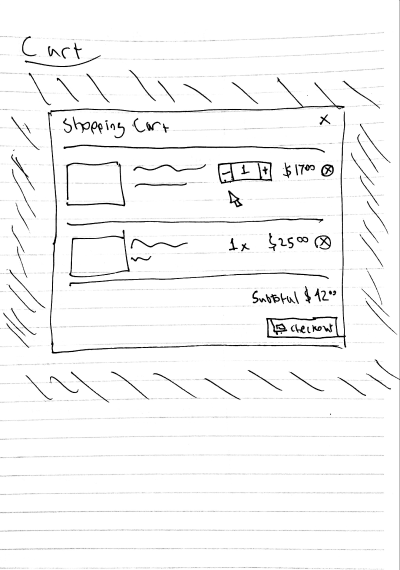 Cart
Shopping Cart x
- 1 + $1700
1x $2500
Subtotal $1200
checkout